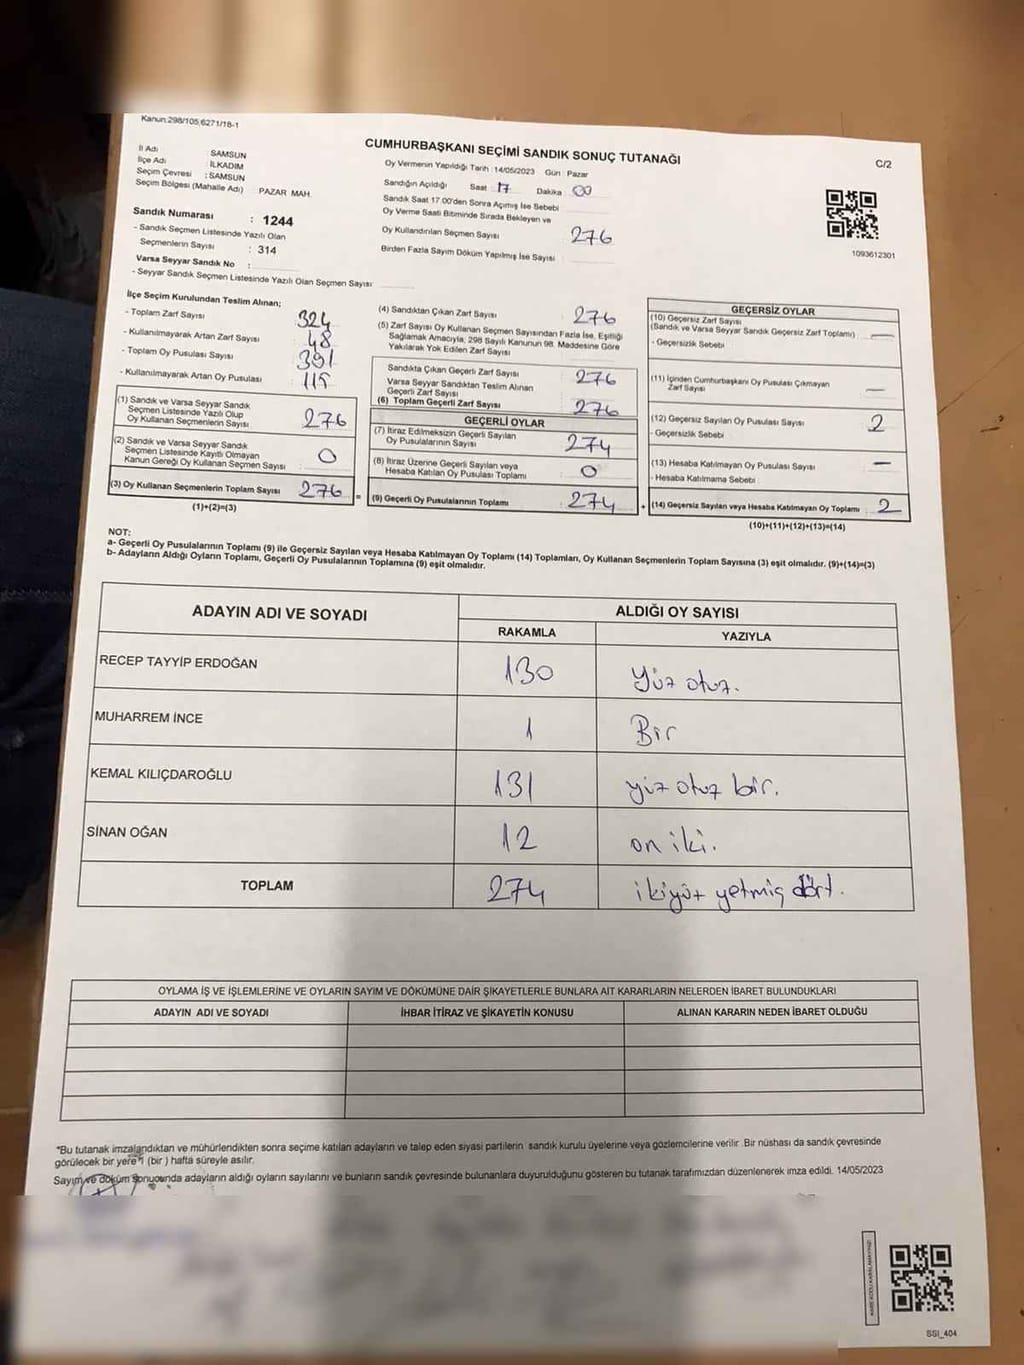 Kanun:298/105,6271/18-1
CUMHURBAŞKANI SEÇİMİ SANDIK SONUÇ TUTANAĞI
C/2
İl Adı : SAMSUN
İlçe Adı : İLKADIM
Seçim Çevresi : SAMSUN
Seçim Bölgesi (Mahalle Adı) PAZAR MAH.
Sandık Numarası : 1244
- Sandık Seçmen Listesinde Yazılı Olan
Seçmenlerin Sayısı : 314
Varsa Seyyar Sandık No :
- Seyyar Sandık Seçmen Listesinde Yazılı Olan Seçmen Sayısı:
Oy Vermenin Yapıldığı Tarih :14/05/2023 Gün : Pazar
Sandığın Açıldığı Saat : 17 Dakika : 00
Sandık Saat 17.00'den Sonra Açımış İse Sebebi
Oy Verme Saati Bitiminde Sırada Bekleyen ve
Oy Kullandırılan Seçmen Sayısı : 276
Birden Fazla Sayım Döküm Yapılmış İse Sayısı :
1093612301
İlçe Seçim Kurulundan Teslim Alınan;
- Toplam Zarf Sayısı : 324
- Kullanılmayarak Artan Zarf Sayısı : 48
- Toplam Oy Pusulası Sayısı : 391
- Kullanılmayarak Artan Oy Pusulası : 115
(1) Sandık ve Varsa Seyyar Sandık
Seçmen Listesinde Yazılı Olup
Oy Kullanan Seçmenlerin Sayısı : 276
(2) Sandık ve Varsa Seyyar Sandık
Seçmen Listesinde Kayıtlı Olmayan
Kanun Gereği Oy Kullanan Seçmen Sayısı : 0
(3) Oy Kullanan Seçmenlerin Toplam Sayısı : 276
(1)+(2)=(3)
(4) Sandıktan Çıkan Zarf Sayısı : 276
(5) Zarf Sayısı Oy Kullanan Seçmen Sayısından Fazla İse, Eşitliği
Sağlamak Amacıyla, 298 Sayılı Kanunun 98. Maddesine Göre
Yakılarak Yok Edilen Zarf Sayısı :
Sandıkta Çıkan Geçerli Zarf Sayısı : 276
Varsa Seyyar Sandıktan Teslim Alınan
Geçerli Zarf Sayısı :
(6) Toplam Geçerli Zarf Sayısı : 276
GEÇERLİ OYLAR
(7) İtiraz Edilmeksizin Geçerli Sayılan
Oy Pusulalarının Sayısı : 274
(8) İtiraz Üzerine Geçerli Sayılan veya
Hesaba Katılan Oy Pusulası Toplamı : 0
= (9) Geçerli Oy Pusulalarının Toplamı : 274
GEÇERSİZ OYLAR
(10) Geçersiz Zarf Sayısı
(Sandık ve Varsa Seyyar Sandık Geçersiz Zarf Toplamı) : —
- Geçersizlik Sebebi :
(11) İçinden Cumhurbaşkanı Oy Pusulası Çıkmayan
Zarf Sayısı : —
(12) Geçersiz Sayılan Oy Pusulası Sayısı : 2
- Geçersizlik Sebebi :
(13) Hesaba Katılmayan Oy Pusulası Sayısı : —
- Hesaba Katılmama Sebebi :
+ (14) Geçersiz Sayılan veya Hesaba Katılmayan Oy Toplamı : 2
(10)+(11)+(12)+(13)=(14)
NOT:
a- Geçerli Oy Pusulalarının Toplamı (9) ile Geçersiz Sayılan veya Hesaba Katılmayan Oy Toplamı (14) Toplamları, Oy Kullanan Seçmenlerin Toplam Sayısına (3) eşit olmalıdır. (9)+(14)=(3)
b- Adayların Aldığı Oyların Toplamı, Geçerli Oy Pusulalarının Toplamına (9) eşit olmalıdır.
ADAYIN ADI VE SOYADI ALDIĞI OY SAYISI
RAKAMLA YAZIYLA
RECEP TAYYİP ERDOĞAN 130 Yüz otuz.
MUHARREM İNCE 1 Bir
KEMAL KILIÇDAROĞLU 131 yüz otuz bir.
SİNAN OĞAN 12 on iki.
TOPLAM 274 ikiyüz yetmiş dört.
OYLAMA İŞ VE İŞLEMLERİNE VE OYLARIN SAYIM VE DÖKÜMÜNE DAİR ŞİKAYETLERLE BUNLARA AİT KARARLARIN NELERDEN İBARET BULUNDUKLARI
ADAYIN ADI VE SOYADI İHBAR İTİRAZ VE ŞİKAYETİN KONUSU ALINAN KARARIN NEDEN İBARET OLDUĞU
*Bu tutanak imzalandıktan ve mühürlendikten sonra seçime katılan adayların ve talep eden siyasi partilerin sandık kurulu üyelerine veya gözlemcilerine verilir. Bir nüshası da sandık çevresinde
görülecek bir yere 1 (bir ) hafta süreyle asılır.
Sayım ve döküm sonucunda adayların aldığı oyların sayılarını ve bunların sandık çevresinde bulunanlara duyurulduğunu gösteren bu tutanak tarafımızdan düzenlenerek imza edildi. 14/05/2023
KARE KODU KARALAMAYINIZ!
SSI_404